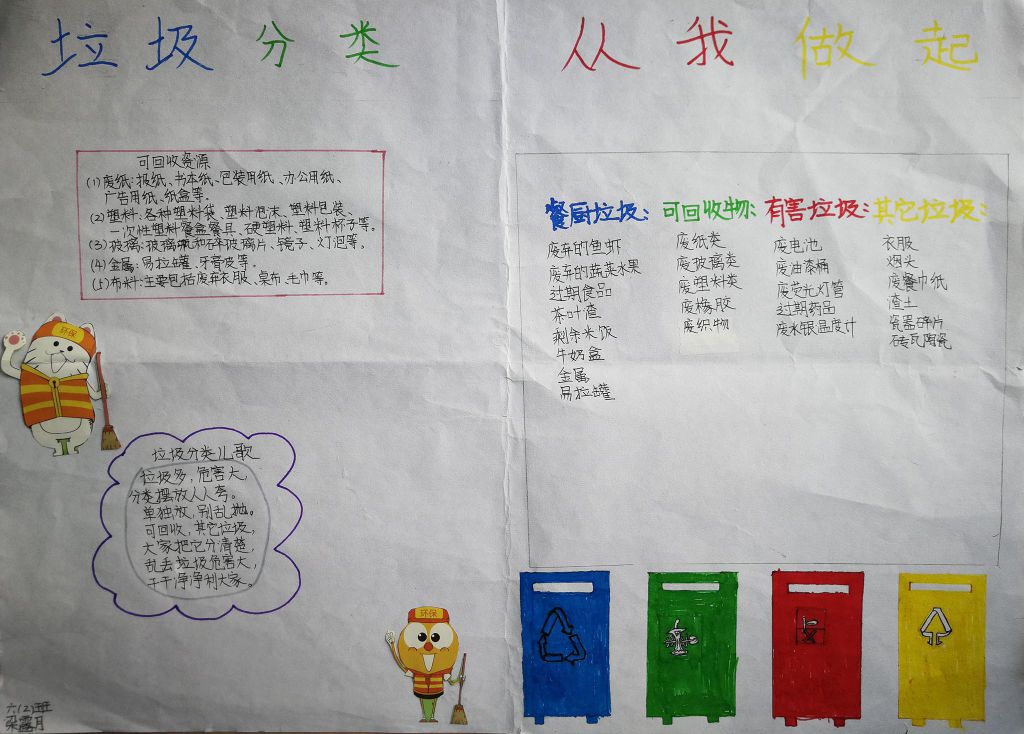 垃圾分类 从我做起
可回收资源
(1)废纸:报纸、书本纸、包装用纸、办公用纸、
广告用纸、纸盒等。
(2)塑料:各种塑料袋、塑料泡沫、塑料包装、
一次性塑料餐盒餐具、硬塑料、塑料杯子等。
(3)玻璃:玻璃瓶和碎玻璃片、镜子、灯泡等。
(4)金属:易拉罐、牙膏皮等。
(5)布料:主要包括废弃衣服、桌布、毛巾等。
环保
垃圾分类儿歌
垃圾多,危害大,
分类摆放人人夸。
单独放,别乱抛。
可回收,其它垃圾,
大家把它分清楚,
乱丢垃圾危害大,
干干净净利大家。
环保
六(2)班
梁露月
餐厨垃圾:
废弃的鱼虾
废弃的蔬菜水果
过期食品
茶叶渣
剩余米饭
牛奶盒
金属
易拉罐
可回收物:
废纸类
废玻璃类
废塑料类
废橡胶
废织物
有害垃圾:
废电池
废油漆桶
废荧光灯管
过期药品
废水银温度计
其它垃圾:
衣服
烟头
废餐巾纸
渣土
瓷器碎片
砖瓦陶瓷